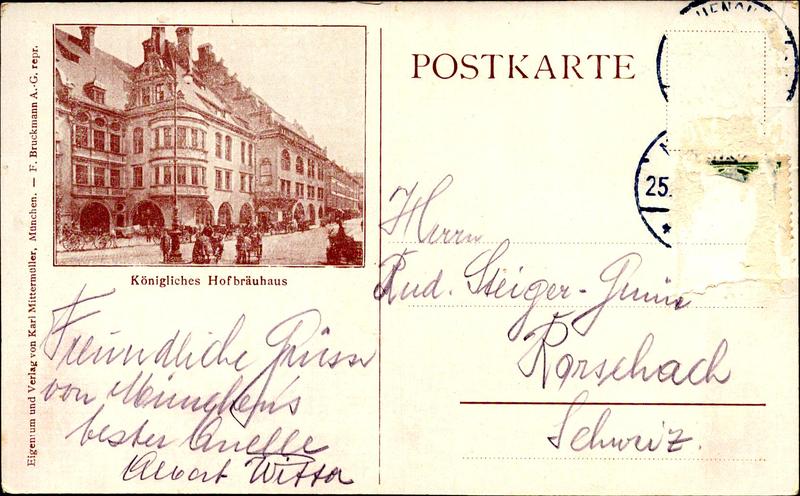 Eigentum und Verlag von Karl Mittermüller, München. — F. Bruckmann A.-G. repr.
Königliches Hofbräuhaus
Freundliche Grüsse
von München's
bester Quelle
Albert
POSTKARTE
25.
Herrn
Rud. Steiger-
Rorschach
Schweiz.